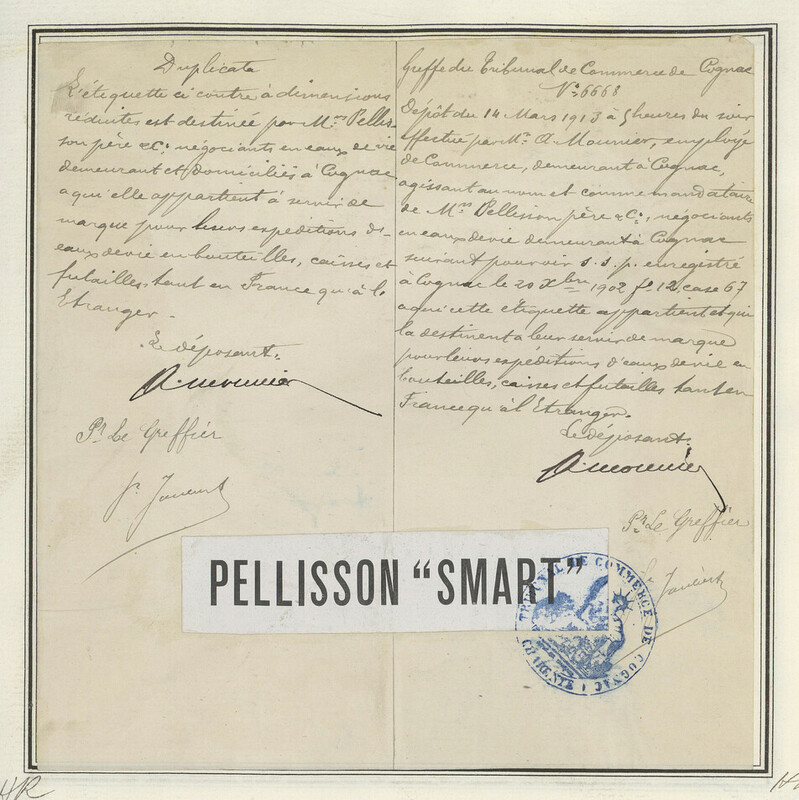 Duplicata
L'étiquette ci contre à dimensions
réduites est destinée par Mrs Pellis-
son père & Cie négociants en eaux de vie
demeurant et domiciliés à Cognac,
a qui elle appartient à servir de
marque pour leurs expéditions d'-
eaux de vie en bouteilles, caisses et
futailles, tant en France qu'à l'
Etranger.
Le déposant.
A. Mounier
Pr Le Greffier
Greffe du Tribunal de Commerce de Cognac
No 6668
Dépôt du 14 Mars 1913 à 5 heures du soir
effectué par Mr A. Mounier, employé
de Commerce, demeurant à Cognac,
agissant au nom et comme mandataire
de Mrs Pellisson père & Cie, négociants
en eaux de vie demeurant à Cognac
suivant pouvoir s.s.p. enregistré
à Cognac le 20 Xbre 1902 fo 12, case 67
a qui cette étiquette appartient et qui
la destinent à leur servir de marque
pour leurs expéditions d'eaux de vie en
bouteilles, caisses et futailles tant en
France qu'à l'Etranger.
Le déposant.
A. Mounier
Pr Le Greffier
PELLISSON “SMART”
TRIBUNAL DE COMMERCE DE COGNAC
CHARENTE
HR